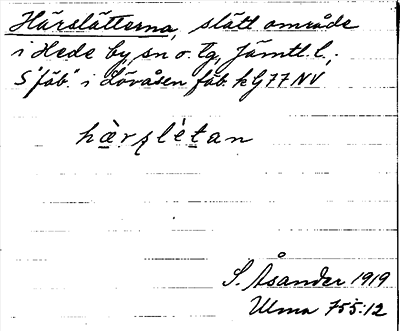 Härslätterna, slått område
i Hede by, sn o. tg, Jämtl. l.;
S "fäb." i Lövåsen fäb. kG 77 NV
hàrslétan
S. Åsander 1919
Ulma 755:12